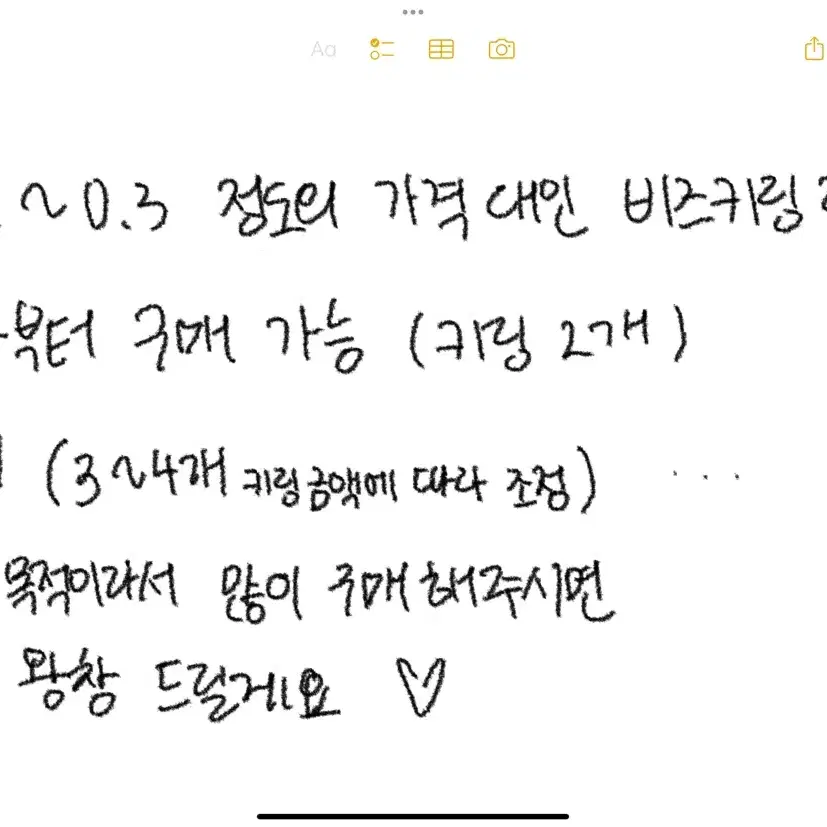 Aa
~0.3 정도의 가격대인 비즈키링
부터 구매 가능 (키링 2개)
(3~4개 키링금액에 따라 조정) ...
목적이라서 많이 구매해주시면
왕창 드릴게요 ♡